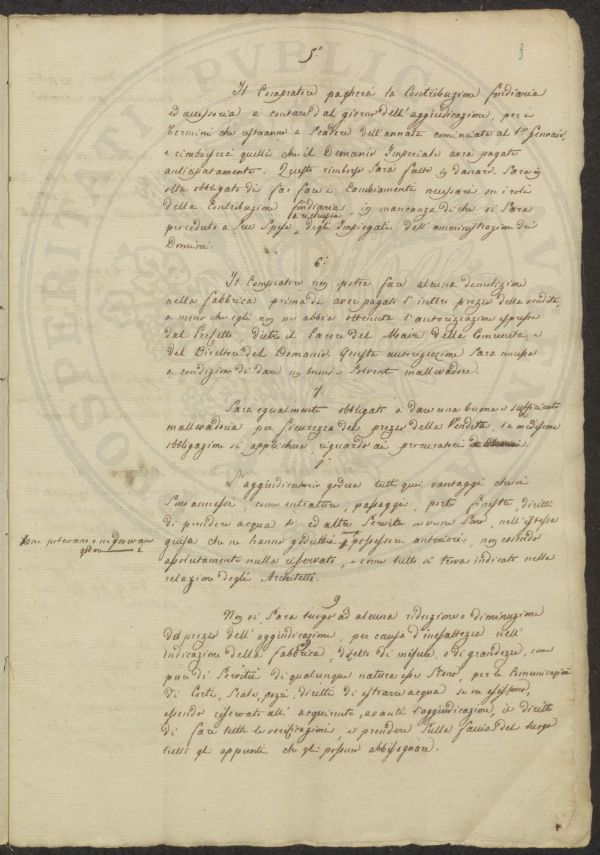 5.°
Il Compratore pagherà la Contribuzione fondiaria
ed accessoria a contare dal giorno dell'aggiudicazione, per i
termini che restranno a scadere dell'annata cominciata al 1mo Gennaio,
e rimborserà quelli che il Demanio Imperiale avrà pagato
anticipatamente. Questo rimborso sarà fatto in danaro. Sarà in
oltre obbligato di far fare i Cambiamenti necessari su i roli
della Contribuzione fondiaria, in mancanza di che vi sarà
proceduto a sue spese, degli Impiegati dell'amministrazione dei
Domini.
6.°
Il Compratore non potrà fare alcuna demolizione
nella fabbrica prima di aver pagato l'intero prezzo della vendita,
a meno che egli non ne abbia ottenuta l'autorizzazione espressa
dal Prefetto dietro il parere del Maire della Comunità, e
del Direttore del Demanio. Questa autorizzazione sarà concessa
a condizione di dare un buono e solvente mallevadore.
7
Sarà egualmente obbligato a dare una buona e sufficiente
mallevadoria per sicurezza del prezzo della Vendita, la medesima
obbligazione si applicherà riguardo ai procuratori
L'aggiudicatario goderà tutti quei vantaggi che vi
sono annessi, come entrature, passaggi, porte finestre, diritti
di prendere acqua ed altre Servitù se vene sono, nell'istessa
guisa che ne hanno goduto i possessori anteriori, non essendo
assolutamente nulla riservato, e come tutto si trova indicato nella
relazione degli Architetti.
ne potevano o ne dovevano
godere
9
Non vi sarà luogo ad alcuna riduzione o diminuzione
del prezzo dell'aggiudicazione, per causa d'inesattezza nell'
indicazione della fabbrica, difetto di misure, o di grandezze, come
pure di Servitù di qualunque natura esse siano, per le Comunicazioni
di Corti, Scale, pozzi, diritti di estrarre acqua se ne esistono,
essendo riservato alli acquirenti, avanti l'aggiudicazione, il diritto
di fare tutte le verificazioni, e prendere sulla faccia del luogo
tutti gli appunti che gli possono abbisognare.